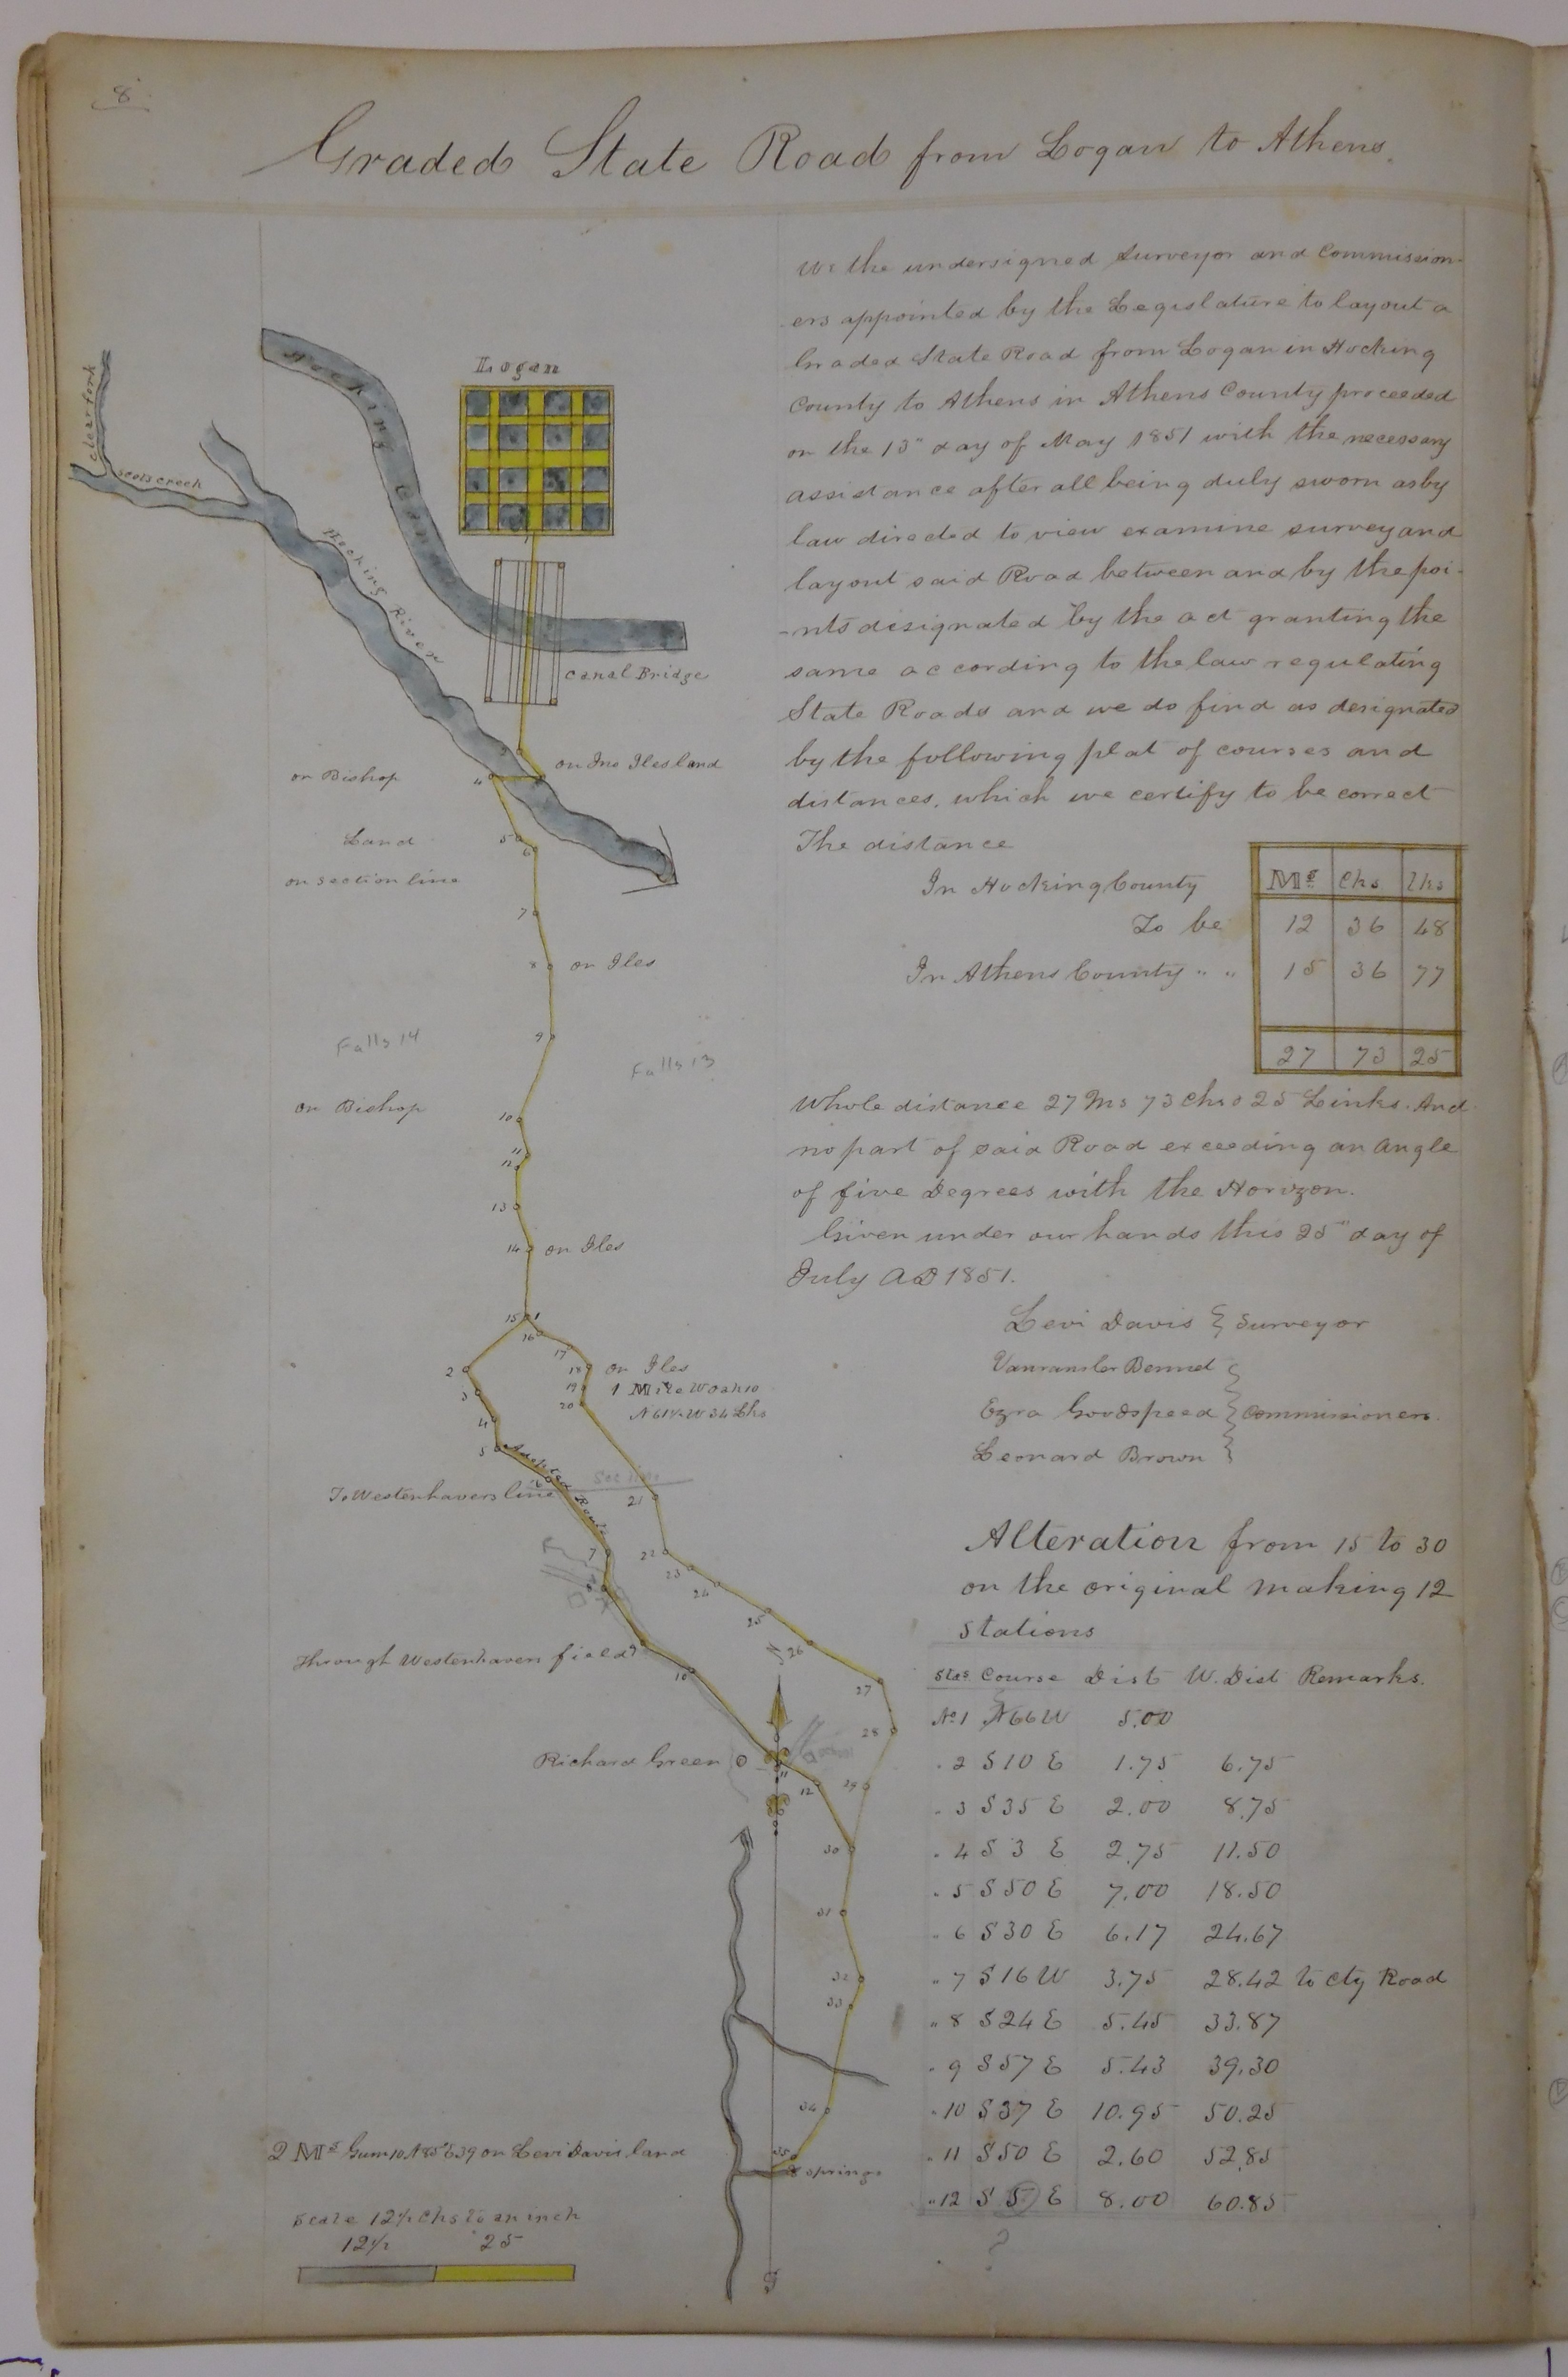 8
Graded State Road from Logan to Athens.
We the undersigned surveyor and Commission-
ers appointed by the Legislature to layout a
Graded State Road from Logan in Hocking
County to Athens in Athens County proceeded
on the 13" day of May 1851 with the necessary
assistance after all being duly sworn as by
law directed to view examine survey and
layout said Road between and by the poi-
-nts designated by the act granting the
same according to the law regulating
State Roads and we do find as designated
by the following plat of courses and
distances, which we certify to be correct
The distance
Ms Chs Lks
In Hocking County
To be 12 36 48
In Athens County " " 15 36 77
27 73 25
Whole distance 27 Ms 73 Chs 25 Links. And
no part of said Road exceeding an Angle
of five Degrees with the Horizon.
Given under our hands this 25" day of
July AD 1851.
Levi Davis } Surveyor
Bennet
Ezra Goodspeed } Commissioners.
Leonard Brown
Alteration from 15 to 30
on the original making 12
stations
Stas Course Dist W. Dist Remarks.
No 1 66 W 5.00
" 2 S 10 E 1.75 6.75
" 3 S 35 E 2.00 8.75
" 4 S 3 E 2.75 11.50
" 5 S 50 E 7.00 18.50
" 6 S 30 E 6.17 24.67
" 7 S 16 W 3.75 28.42 to Cty Road
" 8 S 24 E 5.45 33.87
" 9 S 57 E 5.43 39.30
" 10 S 37 E 10.95 50.25
" 11 S 50 E 2.60 52.85
" 12 S 5 E 8.00 60.85
?
clear fork
scots creek
Hocking Canal
Hocking River
Logan
1
Canal Bridge
2
on Jno Iles land
on Bishop
4
Land
5
6
on section line
7
8 on Iles
9
Falls 14
Falls 13
on Bishop
10
11
12
13
14 on Iles
15 1
16
17
2
18 on Iles
3
19 1 Mile W oak 10
20 N 61 W 34 Lks
4
5
Adopted Route
Sec line
To Westenhavers line
6
21
7
22
23
8
24
25
26
N
Through Westenhaven field
9
10
27
28
Richard Green
11
12
29
30
31
32
33
34
35
springs
2 Ms Gum 10 N 85 E 39 on Levi Davis land
Scale 12½ Chs to an inch
12½ 25
S